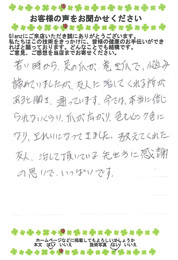 お客様の声をお聞かせください
Glanzにご来店いただき誠にありがとうございます。
私たちはこの技術を一つにし、皆様の健康のお手伝いができれば
と願っております。どんなことでも結構です。
ご意見、ご感想を当店までお寄せください。
若い時から、足のかかと、巻き爪で、悩み
諦めていましたが、友人に治してくれる所が
あると聞き、通っています。今では、本当に信じ
られないくらい、爪が広がり、色もピンク色に
なり、きれいになってきました。教えてくれた
友人、治して頂いている先生方に感謝
の思いで、いっぱいです。
ホームページなどに掲載してもよろしいかしょうか
本文 はい いいえ 施術写真 はい いいえ